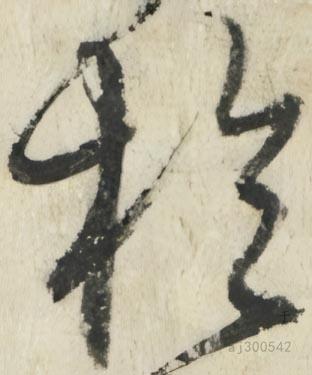 於
aj300542